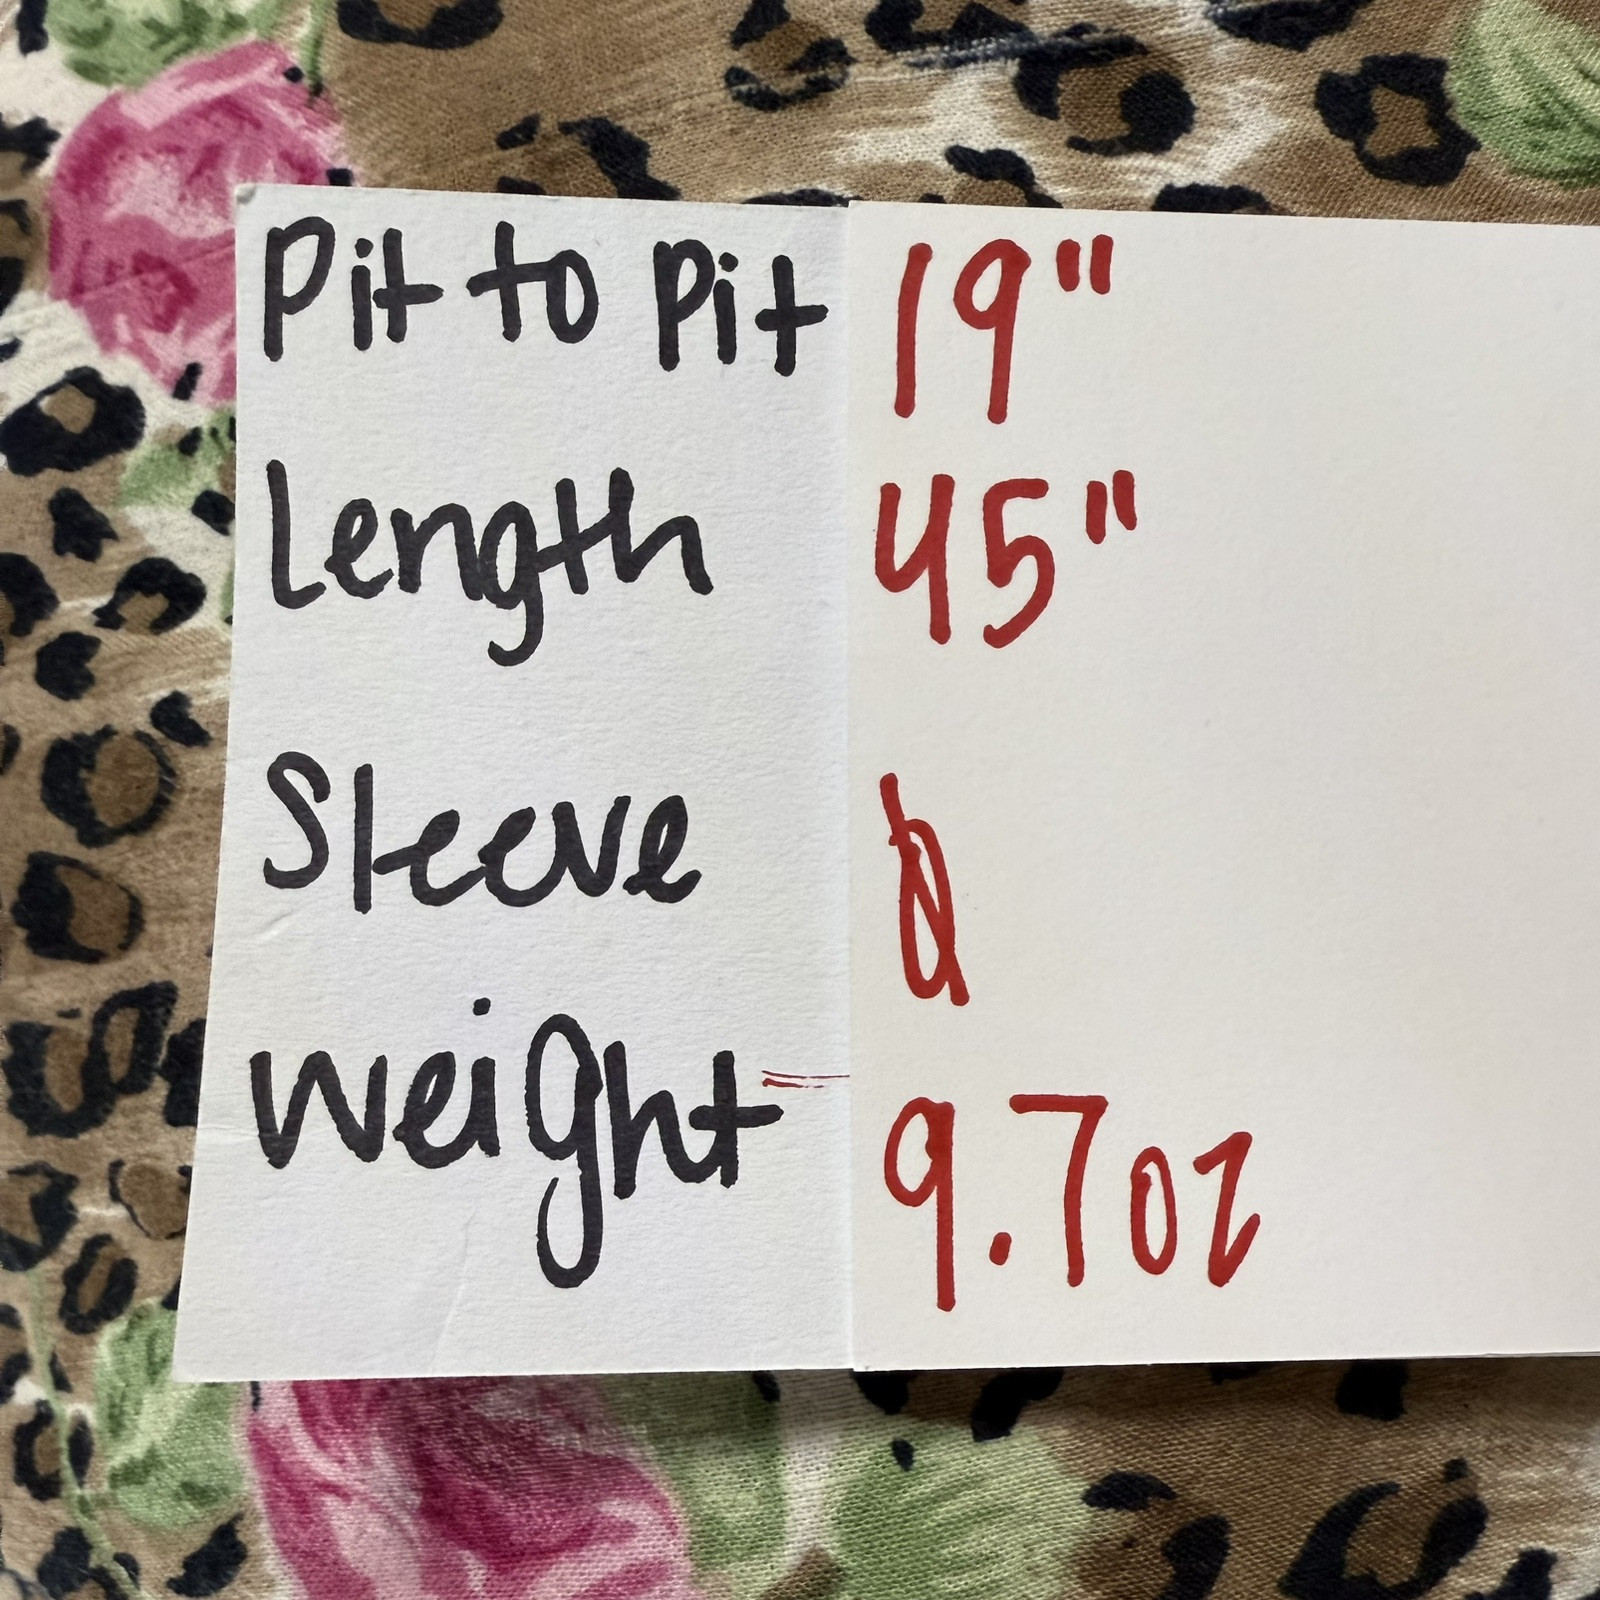 Pit to Pit 19"
Length 45"
Sleeve Ø
Weight 9.7oz